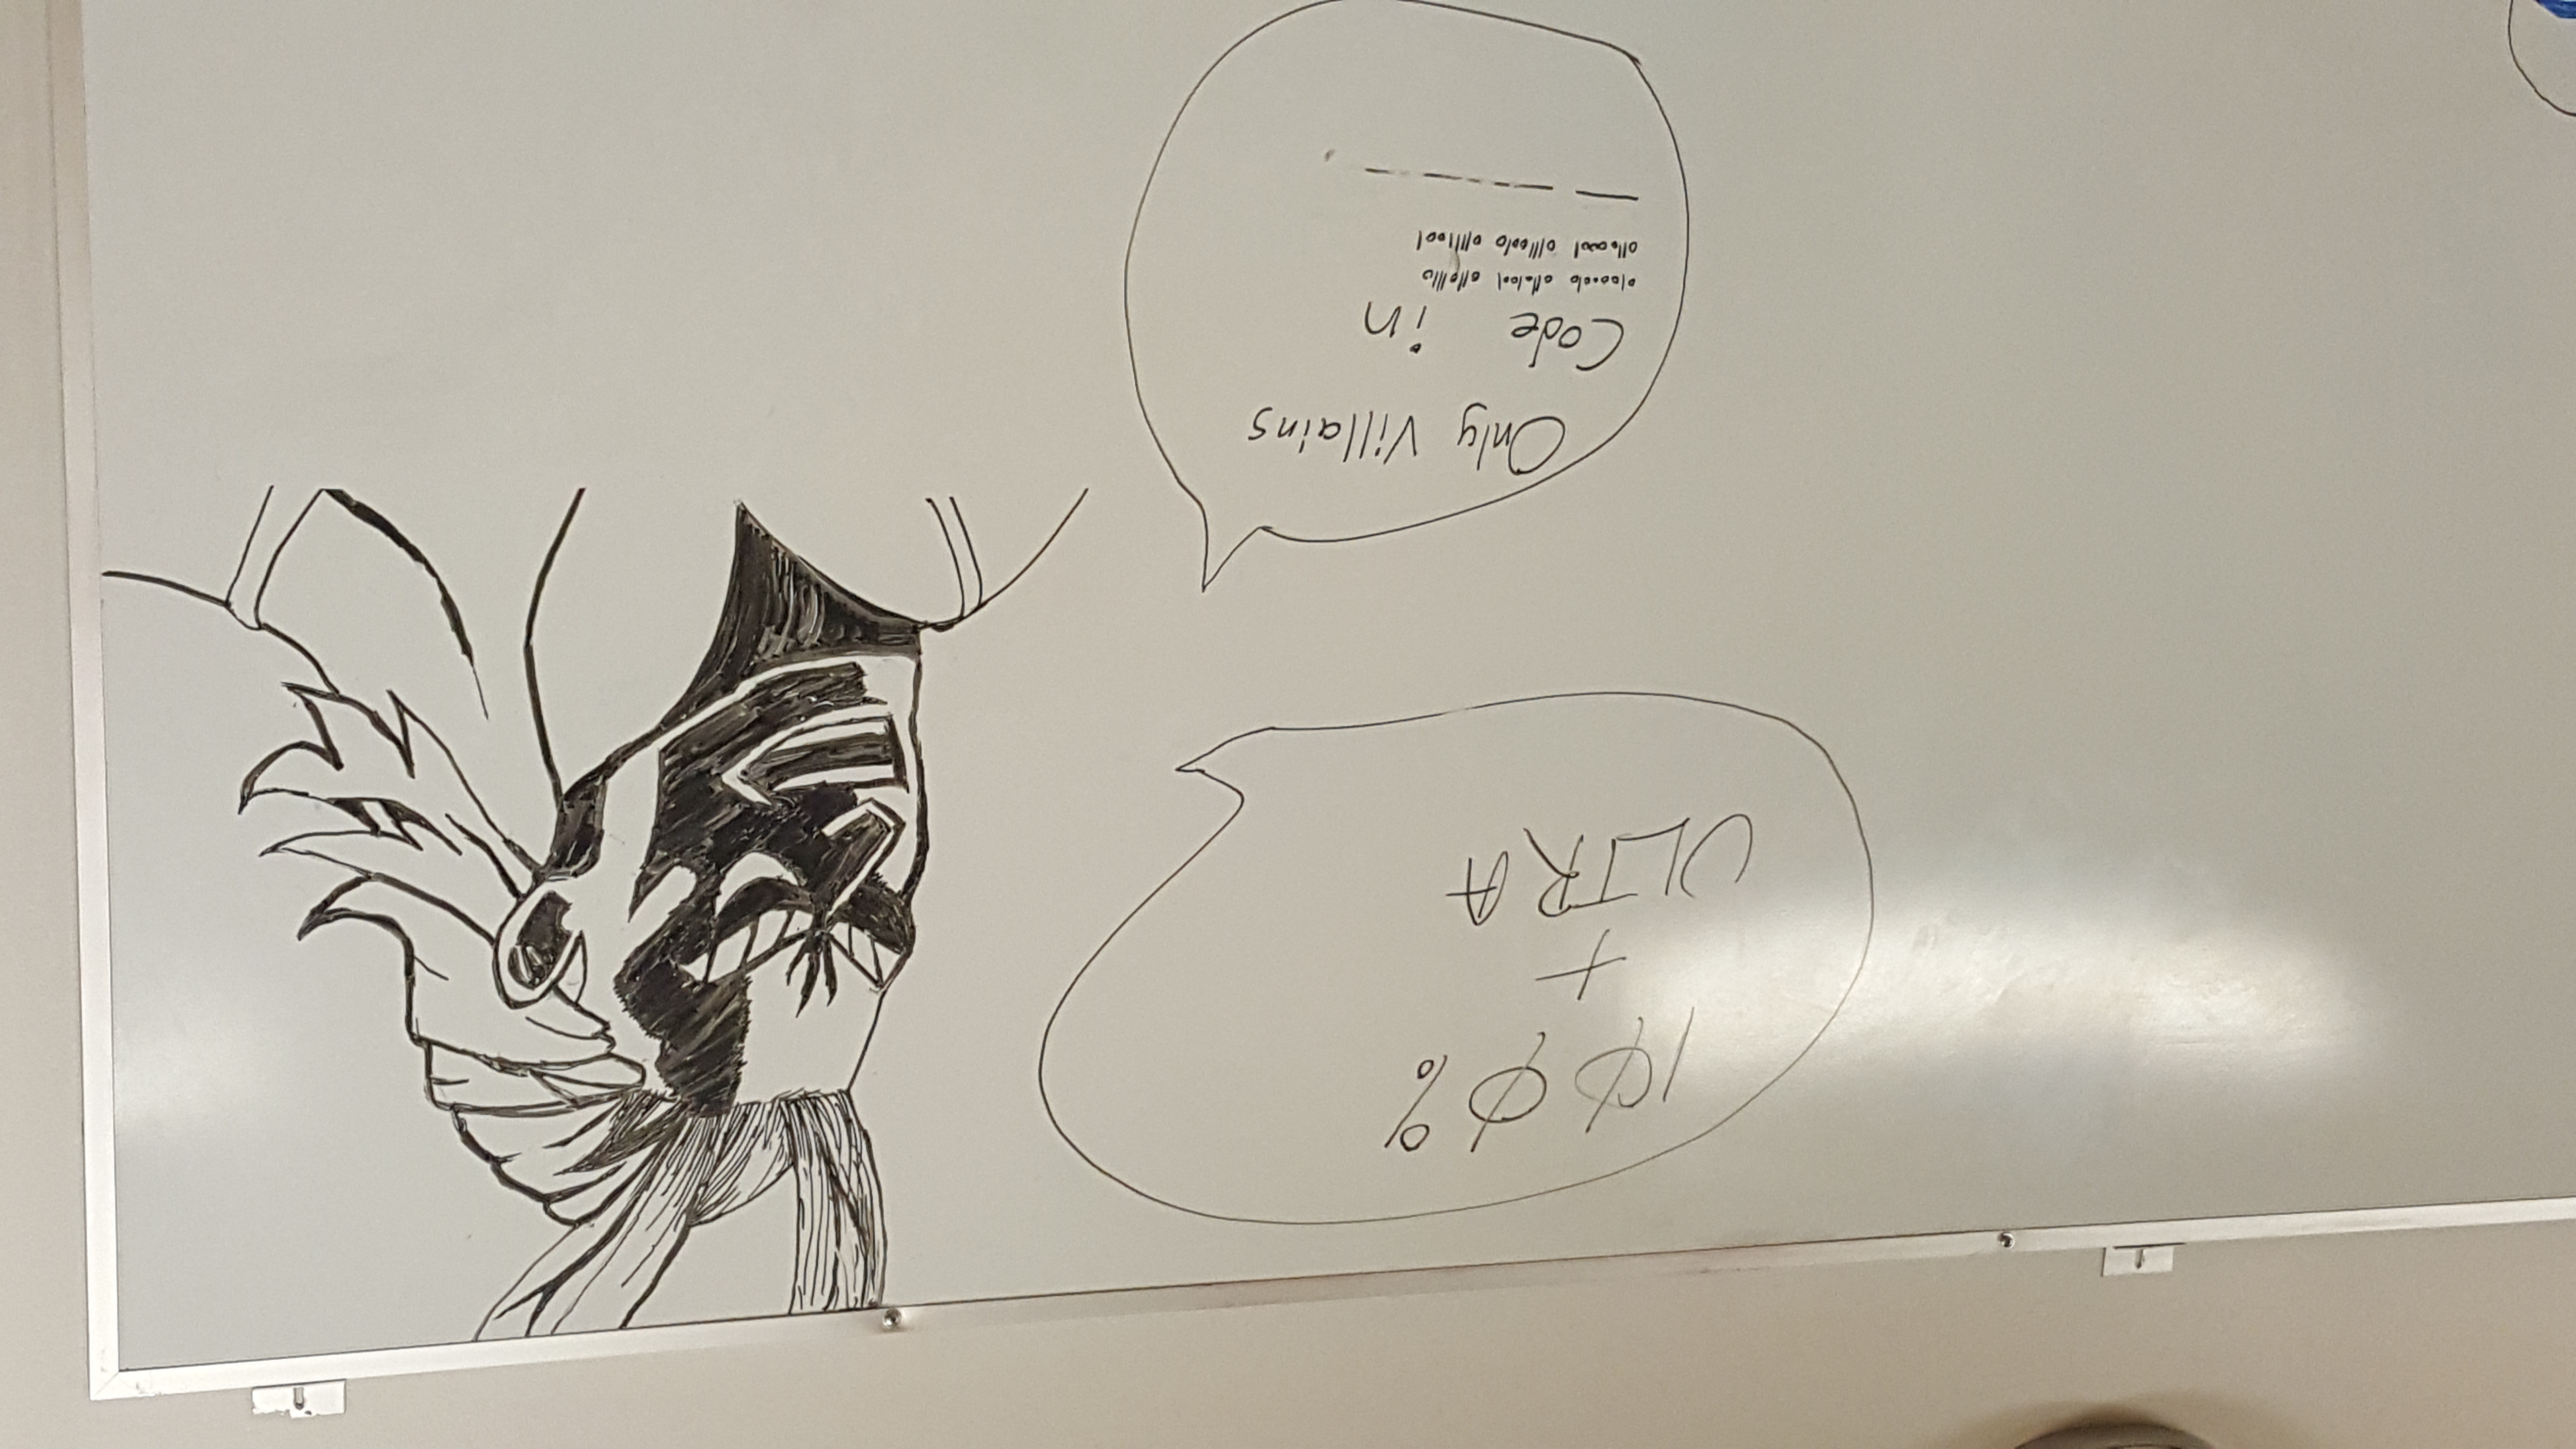 100%
+
ULTRA
Only Villains
Code in
01000010 01101001 01101110
01100001 01110010 01111001